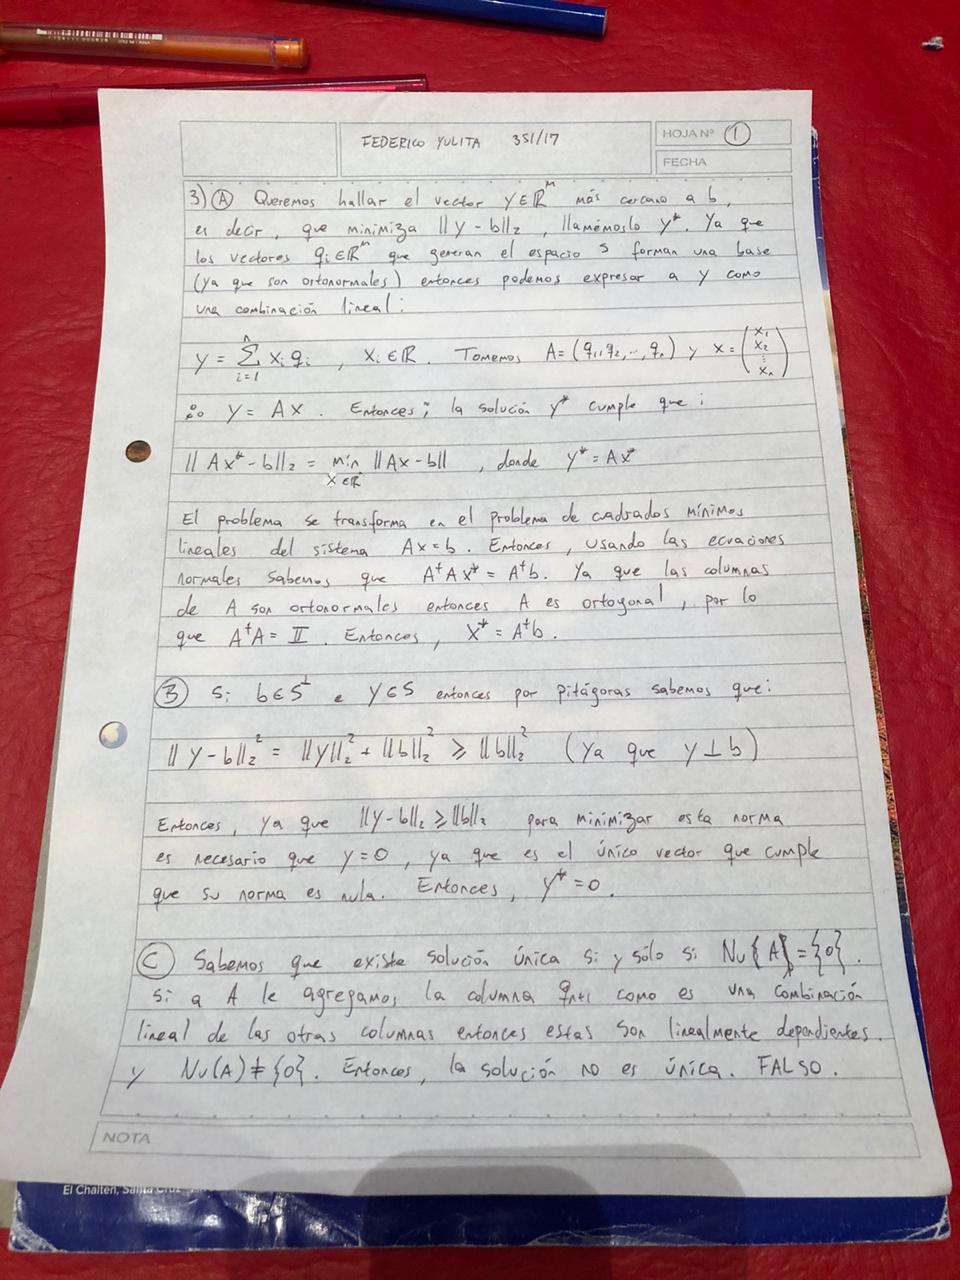 FEDERICO YULITA 351/17
HOJA Nº 1
FECHA
3) A Queremos hallar el vector y∈ℝᵐ más cercano a b,
es decir, que minimiza ||y-b||₂, llamémoslo y*. Ya que
los vectores qᵢ∈ℝᵐ que generan el espacio S forman una base
(ya que son ortonormales) entonces podemos expresar a y como
una combinación lineal:
y = ∑ᵢ₌₁ⁿ xᵢqᵢ , xᵢ∈ℝ. Tomemos A=(q₁,q₂,..,qₙ) y x=(x₁ x₂ ⋮ xₙ)
∴ y = Ax. Entonces; la solución y* cumple que:
||Ax*-b||₂ = mín x∈ℝ ||Ax-b|| , donde y*=Ax*
El problema se transforma en el problema de cuadrados mínimos
lineales del sistema Ax=b. Entonces, usando las ecuaciones
normales sabemos que AᵗAx*=Aᵗb. Ya que las columnas
de A son ortonormales entonces A es ortogonal, por lo
que AᵗA=𝕀. Entonces, x*=Aᵗb.
B Si b∈S⊥ e y∈S entonces por pitágoras sabemos que:
||y-b||₂² = ||y||₂² + ||b||₂² ⩾ ||b||₂² (ya que y⊥b)
Entonces, ya que ||y-b||₂⩾||b||₂ para minimizar esta norma
es necesario que y=0, ya que es el único vector que cumple
que su norma es nula. Entonces, y*=0.
C Sabemos que existe solución única si y sólo si Nu{A}={0}.
Si a A le agregamos la columna qₙ₊₁ como es una combinación
lineal de las otras columnas entonces estas son linealmente dependientes.
y Nu(A)≠{0}. Entonces, la solución no es única. FALSO.
NOTA
El Chaltén, Santa Cruz